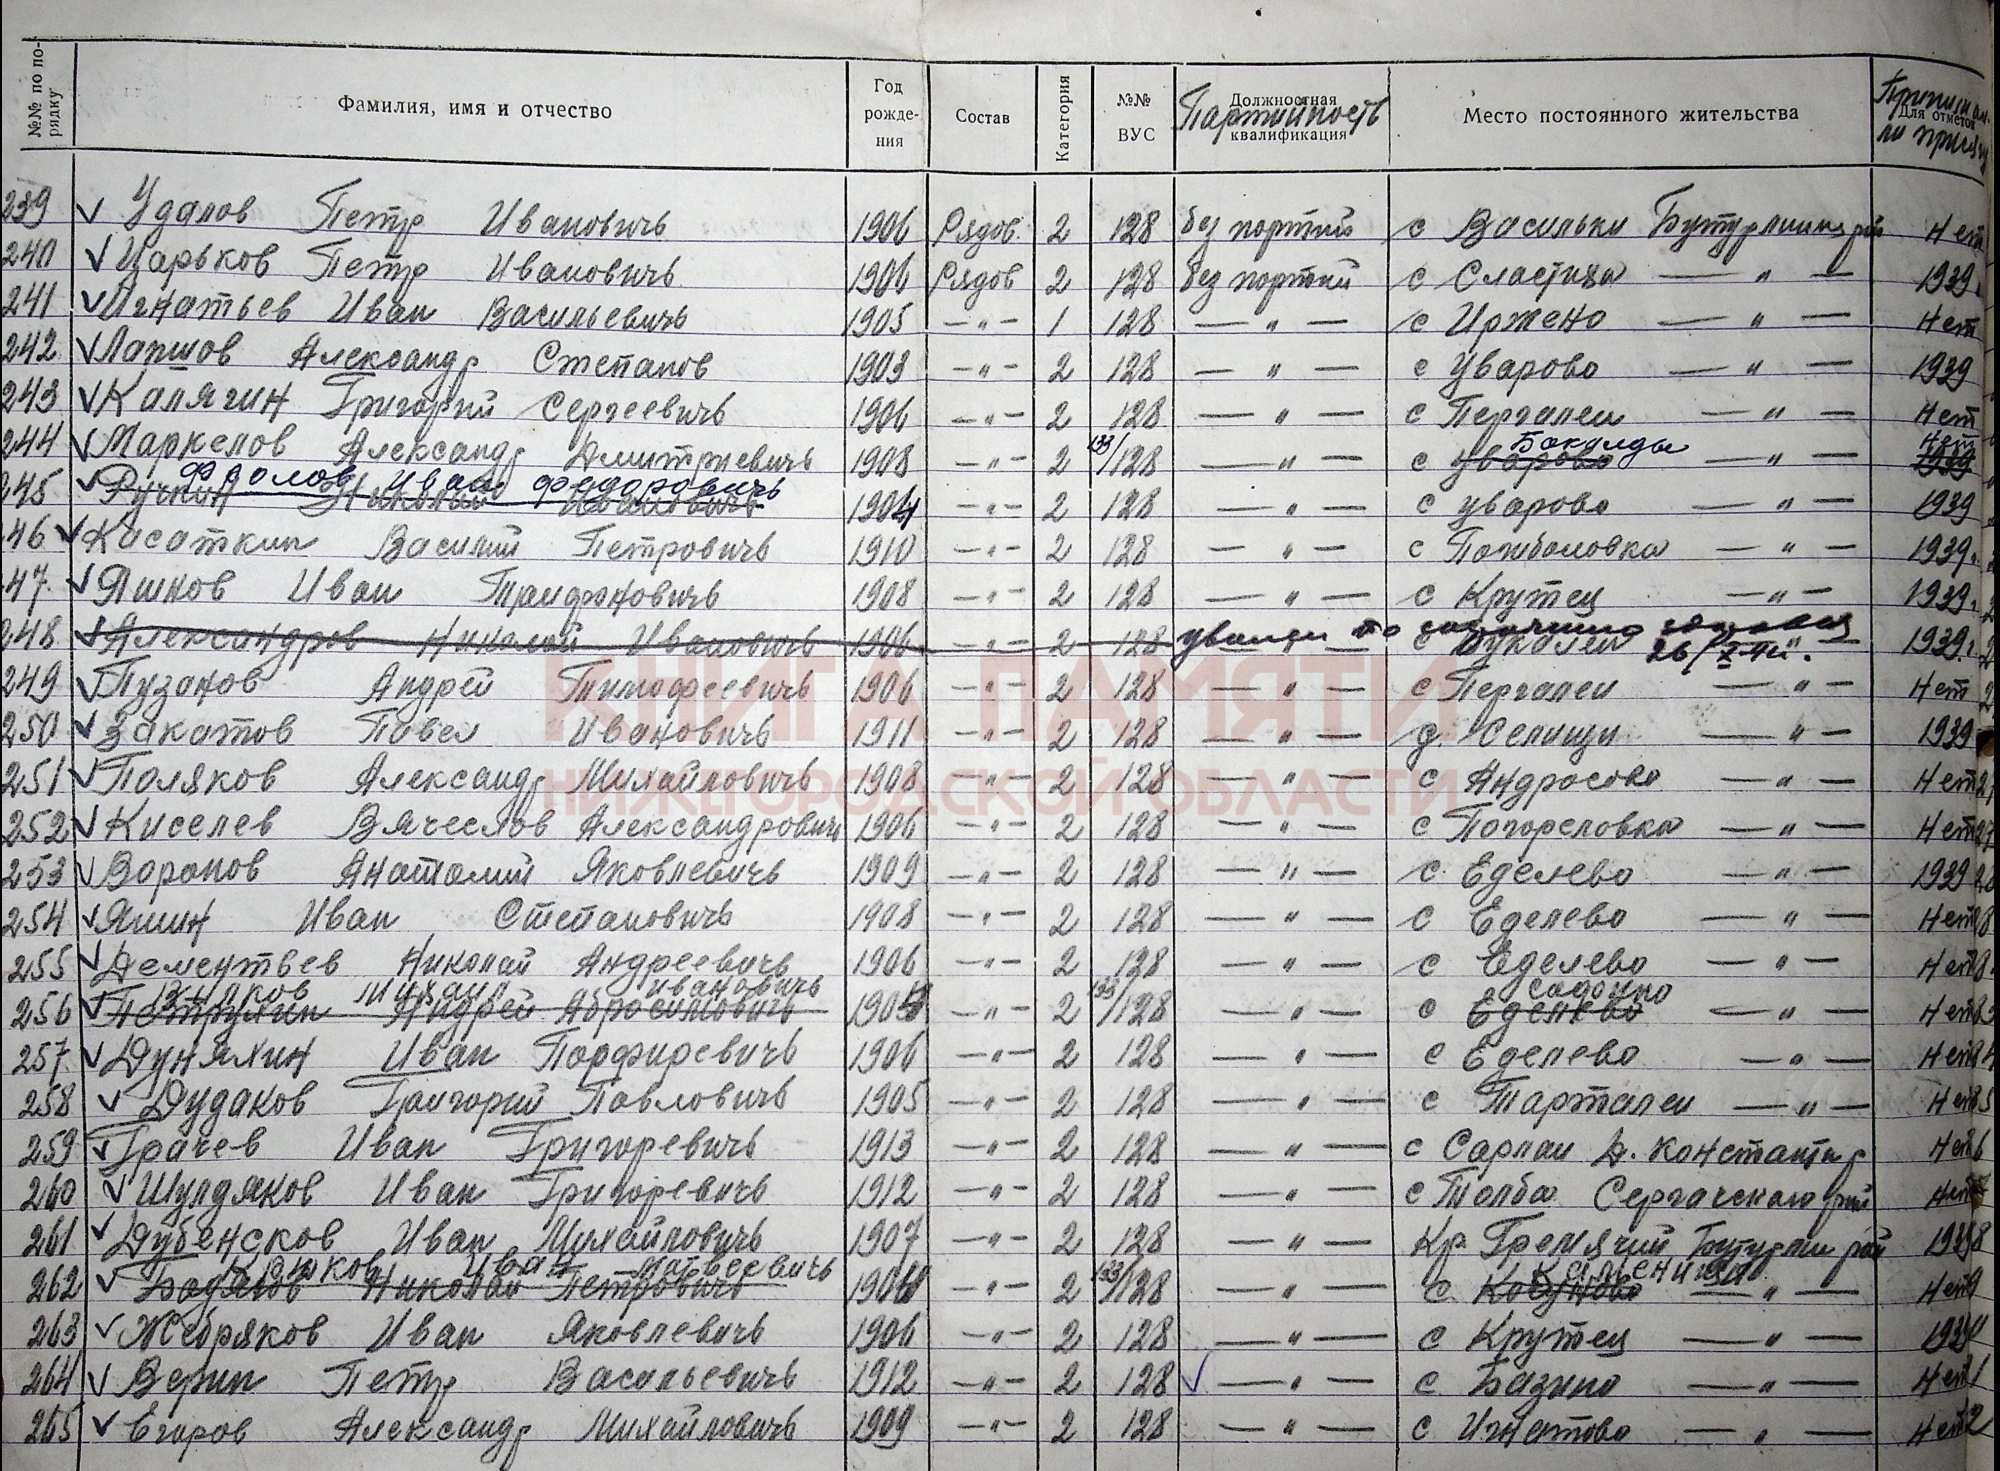 №№ по порядку Фамилия, имя и отчество Год рождения Состав Категория №№ ВУС Должностная квалификация Партийность Место постоянного жительства Для отметок
239 Удалов Петр Ивановичь 1906 Рядов. 2 128 без портий с Васильки Бутурлинск рай Нет
240 Царьков Петр Ивановичь 1906 Рядов 2 128 без портий с Сластиха — " — 1939г
241 Игнатьев Иван Васильевичь 1905 — " — 1 128 — " — с Иржено — " — Нет
242 Лапшов Александр Степанов 1903 — " — 2 128 — " — с Уварово — " — 1939
243 Калягин Григорий Сергеевичь 1906 — " — 2 128 — " — с Пергалеи — " — Нет
244 Маркелов Александр Дмитриевичь 1908 — " — 2 133/128 — " — с Уварово Бакалды — " — 1939 Нет
245 Ручкин Николай Ивановичь Фролов Иван Федоровичь 1904 — " — 2 128 — " — с Уварово — " — 1939
246 Касаткин Василий Петровичь 1910 — " — 2 128 — " — с — " — 1939г.
247 Яшков Иван 1908 — " — 2 128 — " — с Крутец — " — 1939г.
248 Александров Николай Ивановичь 1906 — " — 2 128 уволен по с 26/X-41г. 1939г.
249 Пузанов Андрей Тимофеевичь 1906 — " — 2 128 — " — с Пергалеи — " — Нет
250 Закатов Павел Ивановичь 1911 — " — 2 128 — " — д. Селищи — " — 1939
251 Поляков Александр Михайловичь 1908 — " — 2 128 — " — с Андросово — " — Нет
КНИГА ПАМЯТИ
НИЖЕГОРОДСКОЙ ОБЛАСТИ
252 Киселев Вячеслов Александрович 1906 — " — 2 128 — " — с Погореловка — " — Нет
253 Воронов Анатолий Яковлевичь 1909 — " — 2 128 — " — с. Еделево — " — 1939
254 Яшин Иван Степановичь 1908 — " — 2 128 — " — с Еделево — " — Нет
255 Дементьев Николай Андреевичь 1906 — " — 2 128 — " — с Еделево — " — Нет
256 Петрулгин Андрей Абросимовичь Михаил Ивановичь 1904 — " — 2 133/128 — " — с Еделево — " — Нет
257 Дуняхин Иван Порфиревичь 1906 — " — 2 128 — " — с Еделево — " — Нет
258 Дудаков Григорий Павловичь 1905 — " — 2 128 — " — с Тарталеи — " — Нет
259 Грачев Иван Григоревичь 1913 — " — 2 128 — " — с Сарлаи Д. Константир Нет
260 Шулдяков Иван Григоревичь 1912 — " — 2 128 — " — с Толба Сергачского рай Нет
261 Дубенсков Иван Михайловичь 1907 — " — 2 128 — " — Кр. Гремячий Бутурлин рай 1939
262 Бодяков Николай Петровичь Иван Матвеевичь 190 — " — 2 133/128 — " — с. Кобуново Каменищи — " — Нет
263 Жебряков Иван Яковлевичь 1906 — " — 2 128 — " — с Крутец — " — 193
264 Верин Петр Васильевичь 1912 — " — 2 128 — " — с Базино — " — Нет
265 Егоров Александр Михайловичь 1909 — " — 2 128 — " — с Игнатово — " — Нет